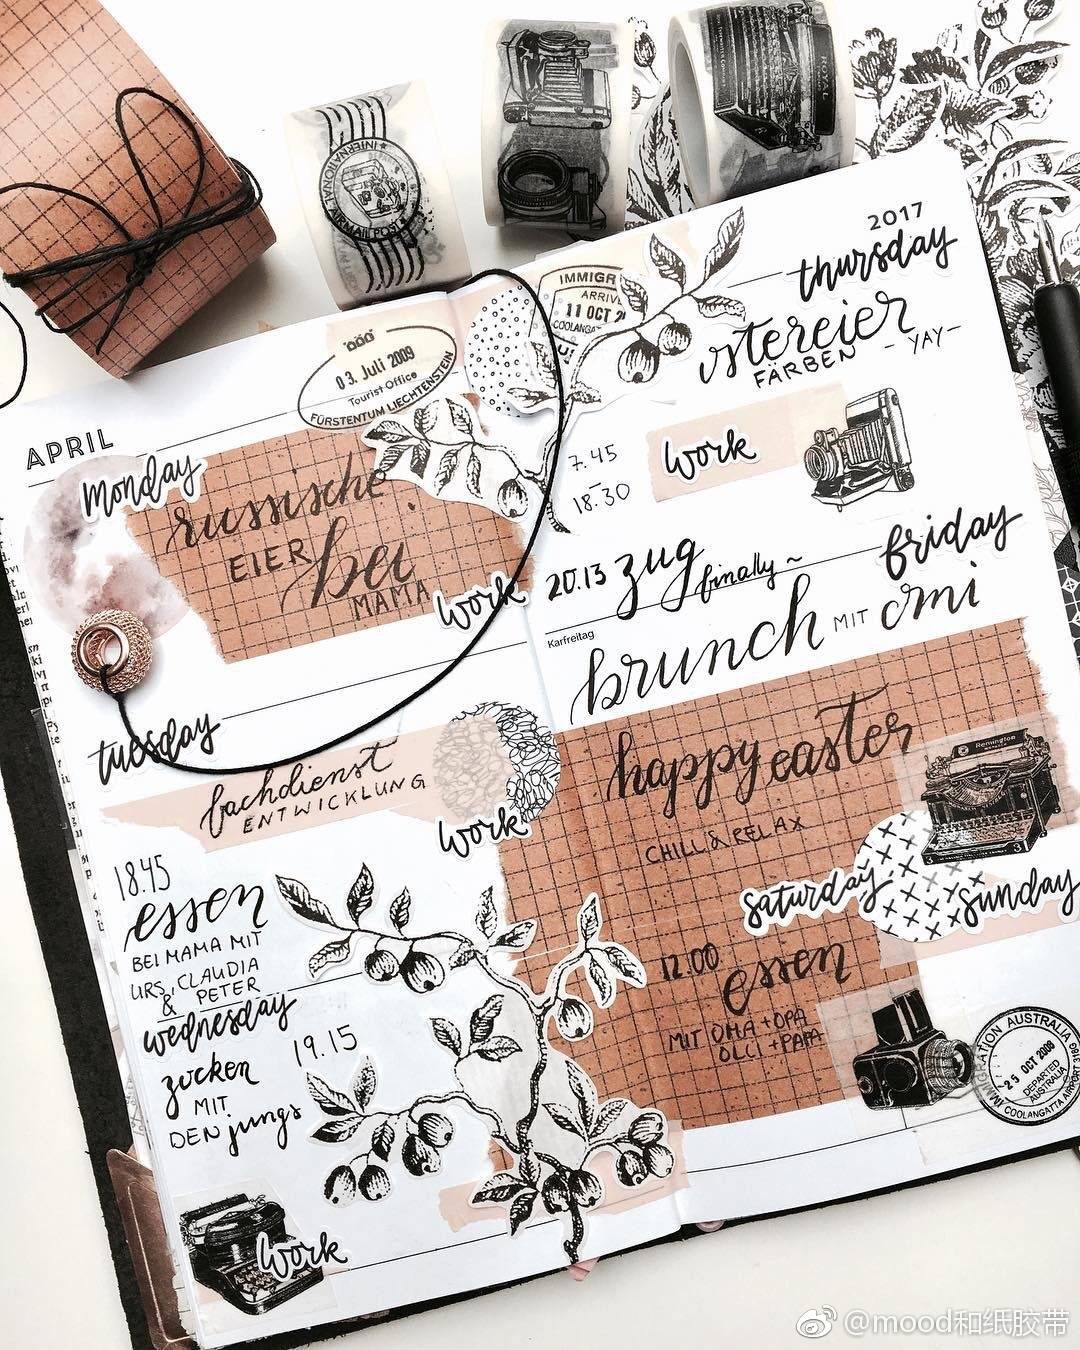 INTERNATIONAL AIRMAIL POST
ROYAL
APRIL
03. Juli 2009
Tourist Office
FÜRSTENTUM LIECHTENSTEIN
monday
russische
EIER bei
MAMA
work
tuesday
fachdienst
ENTWICKLUNG
work
18.45
essen
BEI MAMA MIT
URS, CLAUDIA
& PETER
wednesday
19.15
zocken
MIT
DEN jungs
work
IMMIGR
ARRIVE
11 OCT 2
COOLANGATTA
2017
thursday
ostereier
FÄRBEN - YAY -
7.45
-
18.30
work
20.13 zug finally ~
friday
Karfreitag
brunch MIT omi
happy easter
CHILL & RELAX
Remington
saturday
sunday
12.00
essen
MIT OMA + OPA
OLCI + PAPA
IMMIGRATION AUSTRALIA
25 OCT 2009
DEPARTED
AUSTRALIA
COOLANGATTA AIRPORT
@mood和纸胶带